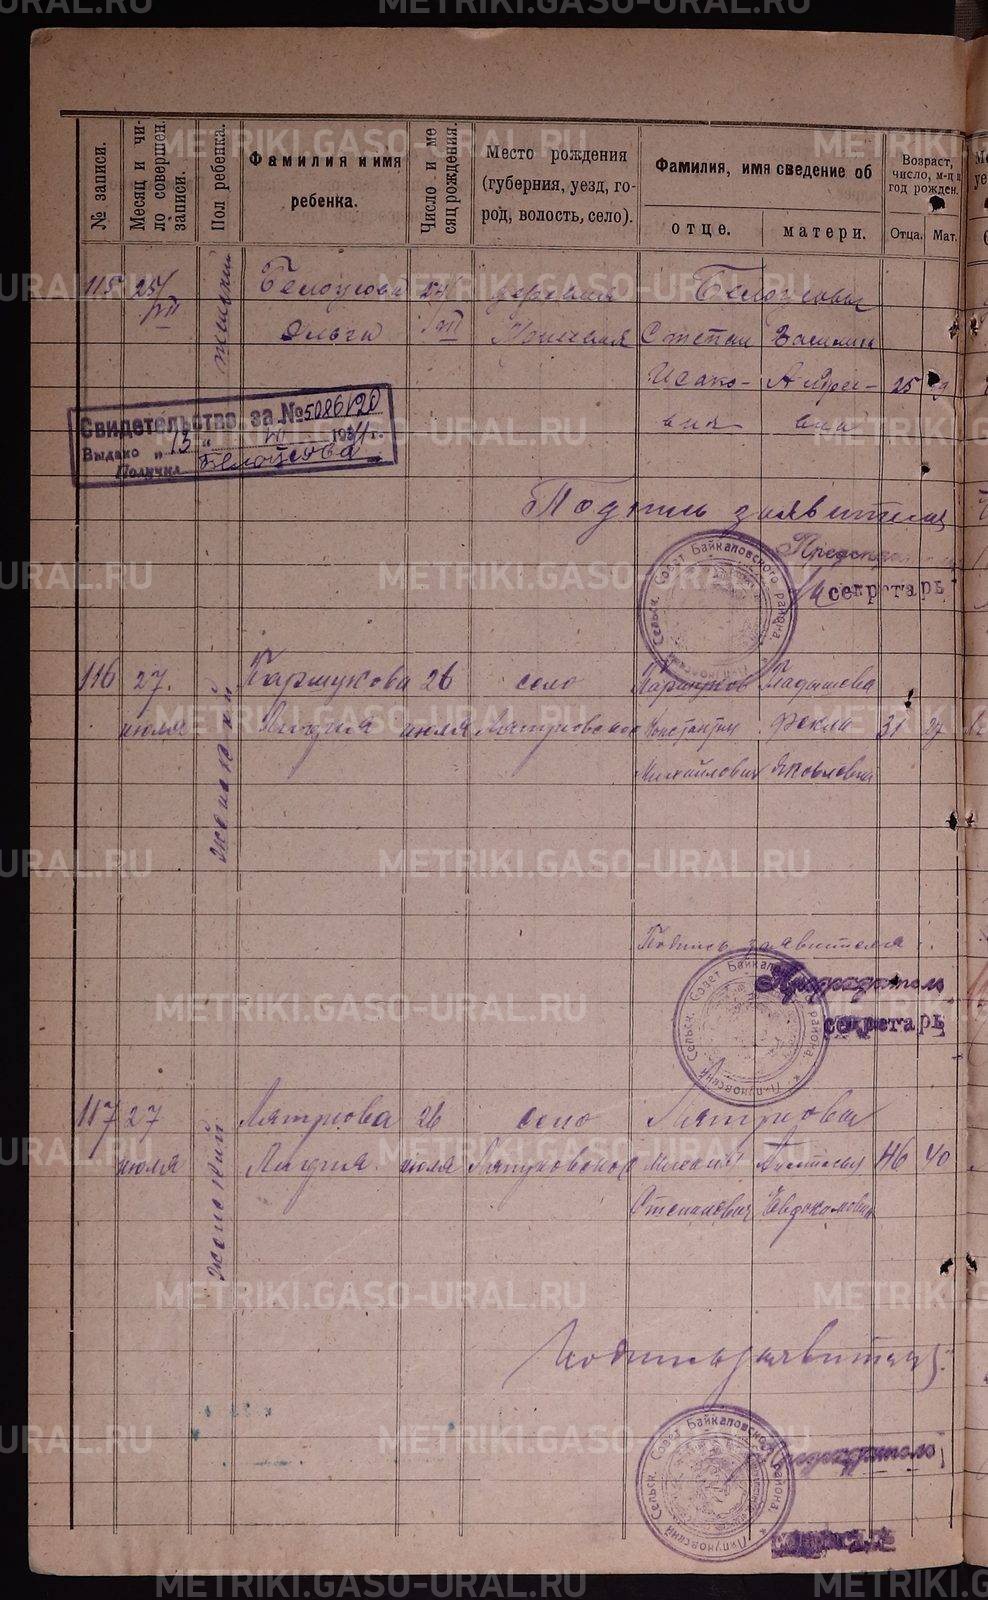 METRIKI.GASO-URAL.RU
№ записи.
Месяц и чи-
ло совершен.
записи.
Пол ребенка.
Фамилия и имя
ребенка.
Число и ме
сяц рождения.
Место рождения
(губерния, уезд, го-
род, волость, село).
Фамилия, имя сведение об
отце.
матери.
Возраст,
число, м-ц и
год рожден.
Отца.
Мат.
115 25/VII женский Белоусова 24 деревня Белоусовы
Ольга VII Степан Василиса
Исако- Андре- 25
вич вна
Свидетельство за № 5086120
Выдано „13“ VII 1934 г.
Получил Белоусова
Подпись заявителя
Председатель
секретарь
Сельск. Совет Байкаловского района.
116 27. женский Паршукова 26 село Паршуков Ладышева
июля Лидия июля Ляпуновское Константин Фекла 31 27
Михайлович Яковлевна
Подпись заявителя
Председатель
секретарь
Ляпуновский Сельск. Совет Байкаловского района.
117 27 женский Ляпунова 26 село Ляпуновы
июля Лидия. июля Ляпуновское Михаил Анастасия 46 40
Степанович Евдокимовна
Подпись заявителя
Ляпуновский Сельск. Совет Байкаловского района.